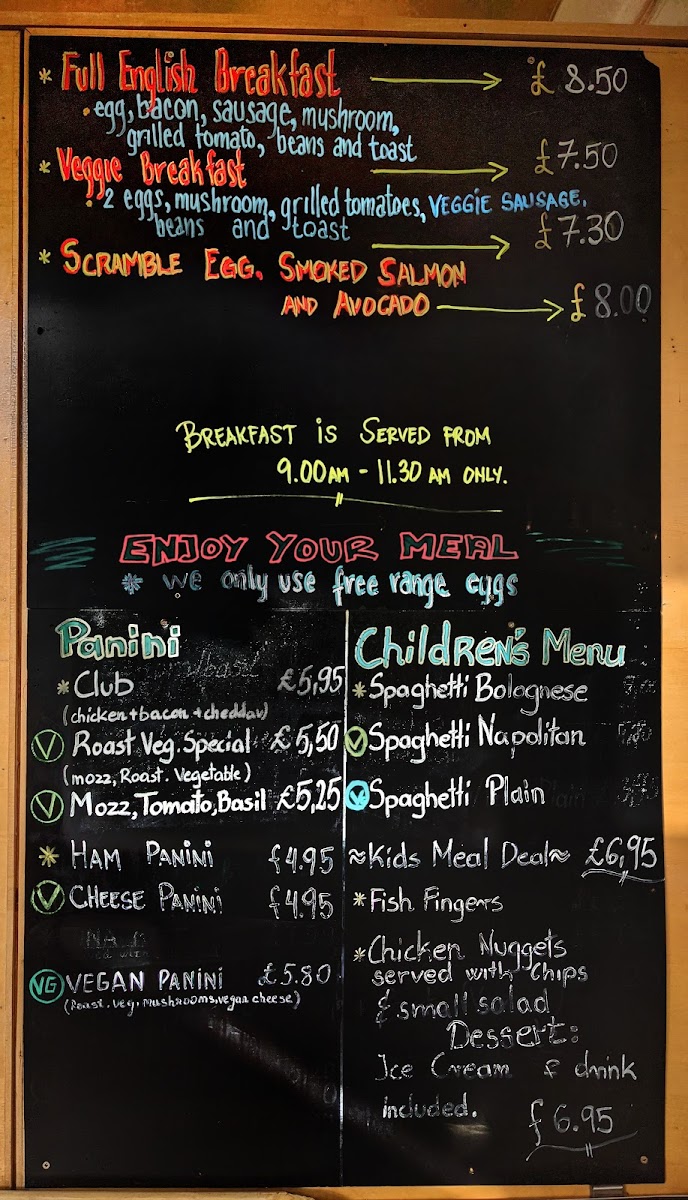 * Full English Breakfast → £ 8.50
egg, bacon, sausage, mushroom,
grilled tomato, beans and toast
* Veggie Breakfast → £7.50
2 eggs, mushroom, grilled tomatoes, VEGGIE SAUSAGE,
beans and toast → £7.30
* SCRAMBLE EGG, SMOKED SALMON
AND AVOCADO → £ 8.00
BREAKFAST IS SERVED FROM
9.00AM - 11.30 AM ONLY.
ENJOY YOUR MEAL
* we only use free range eggs
Panini
* Club £5,95
(chicken + bacon + cheddar)
V Roast Veg. Special £5,50
(mozz, Roast. Vegetable)
V Mozz, Tomato, Basil £5,25
* HAM PANINI £4.95
V CHEESE PANINI £4.95
VG VEGAN PANINI £5.80
(Roast. veg, mushrooms, vegan cheese)
Children's Menu
* Spaghetti Bolognese
V Spaghetti Napolitan
Spaghetti Plain
~Kids Meal Deal~ £6,95
* Fish Fingers
* Chicken Nuggets
served with Chips
& small salad
Dessert:
Ice Cream & drink
included. £6.95